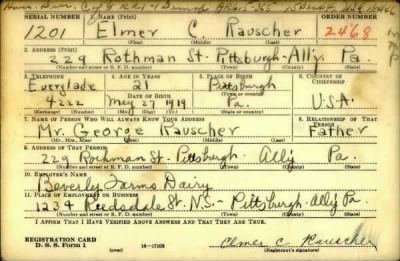 SERIAL NUMBER 1. NAME (Print) ORDER NUMBER
1201 Elmer C. Rauscher 2468
(First) (Middle) (Last)
2. ADDRESS (Print)
229 Rothman St. Pittsburgh-Ally. Pa.
(Number and street or R. F. D. number) (Town) (County) (State)
3. TELEPHONE 4. AGE IN YEARS 5. PLACE OF BIRTH 6. COUNTRY OF CITIZENSHIP
Everglade 21 Pittsburgh
DATE OF BIRTH
4222 May 27 1919 Pa. U.S.A.
(Exchange) (Number) (Mo.) (Day) (Yr.) (State or country)
7. NAME OF PERSON WHO WILL ALWAYS KNOW YOUR ADDRESS 8. RELATIONSHIP OF THAT PERSON
Mr. George Rauscher Father
(Mr., Mrs., Miss) (First) (Middle) (Last)
9. ADDRESS OF THAT PERSON
229 Rothman St. Pittsburgh-Ally. Pa.
(Number and street or R. F. D. number) (Town) (County) (State)
10. EMPLOYER'S NAME
Beverly Farms Dairy
11. PLACE OF EMPLOYMENT OR BUSINESS
1234 Reedsdale St. N.S.- Pittsburgh-Ally. Pa.
(Number and street or R. F. D. number) (Town) (County) (State)
I AFFIRM THAT I HAVE VERIFIED ABOVE ANSWERS AND THAT THEY ARE TRUE.
REGISTRATION CARD
D. S. S. Form 1 (over) 16-17105 Elmer C. Rauscher
(Registrant's signature)